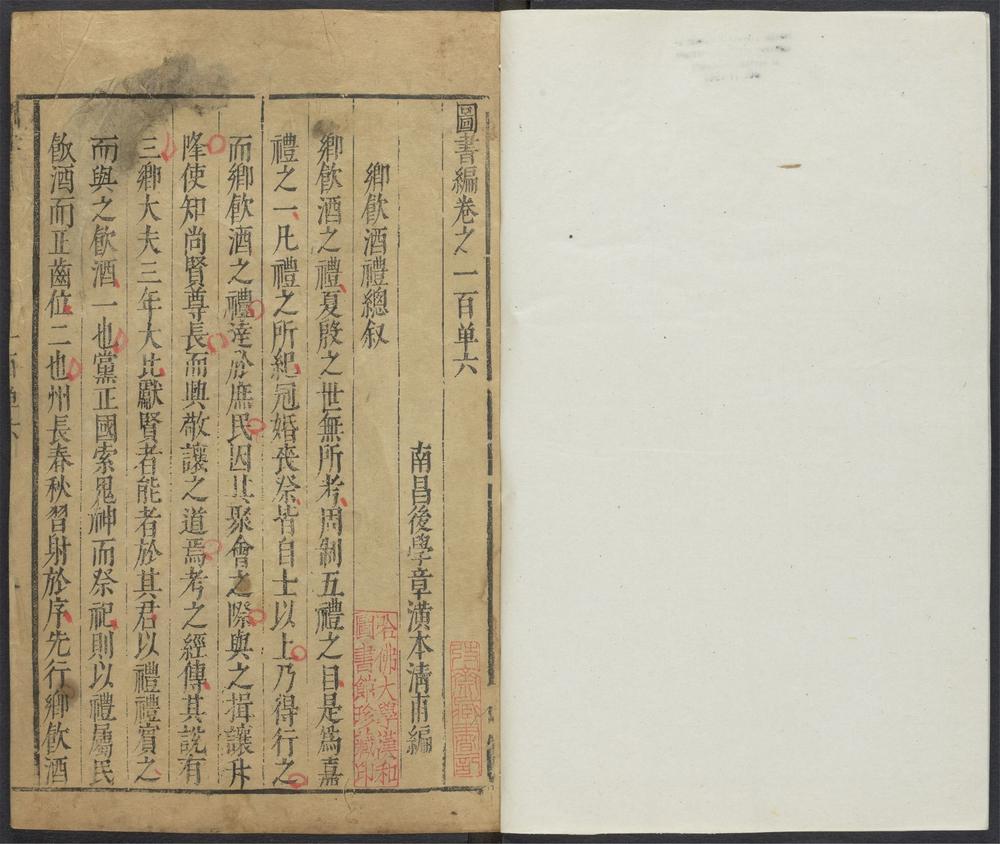 圖書編卷之一百单六
南昌後學章潢本清甫編
鄉飲酒禮總叙
鄉飲酒之禮夏殷之世無所考周制五禮之目是為嘉
禮之一凡禮之所紀冠婚喪祭皆自士以上乃得行之
而鄉飲酒之禮達於庶民因其聚會之際與之揖讓升
降使知尚賢尊長而興敬讓之道焉考之經傳其說有
三鄉大夫三年大比獻賢者能者於其君以禮禮賓之
而與之飲酒一也黨正國索鬼神而祭祀則以禮屬民
飲酒而正齒位二也州長春秋習射於序先行鄉飲酒
哈佛大學漢和
圖書館珍藏印